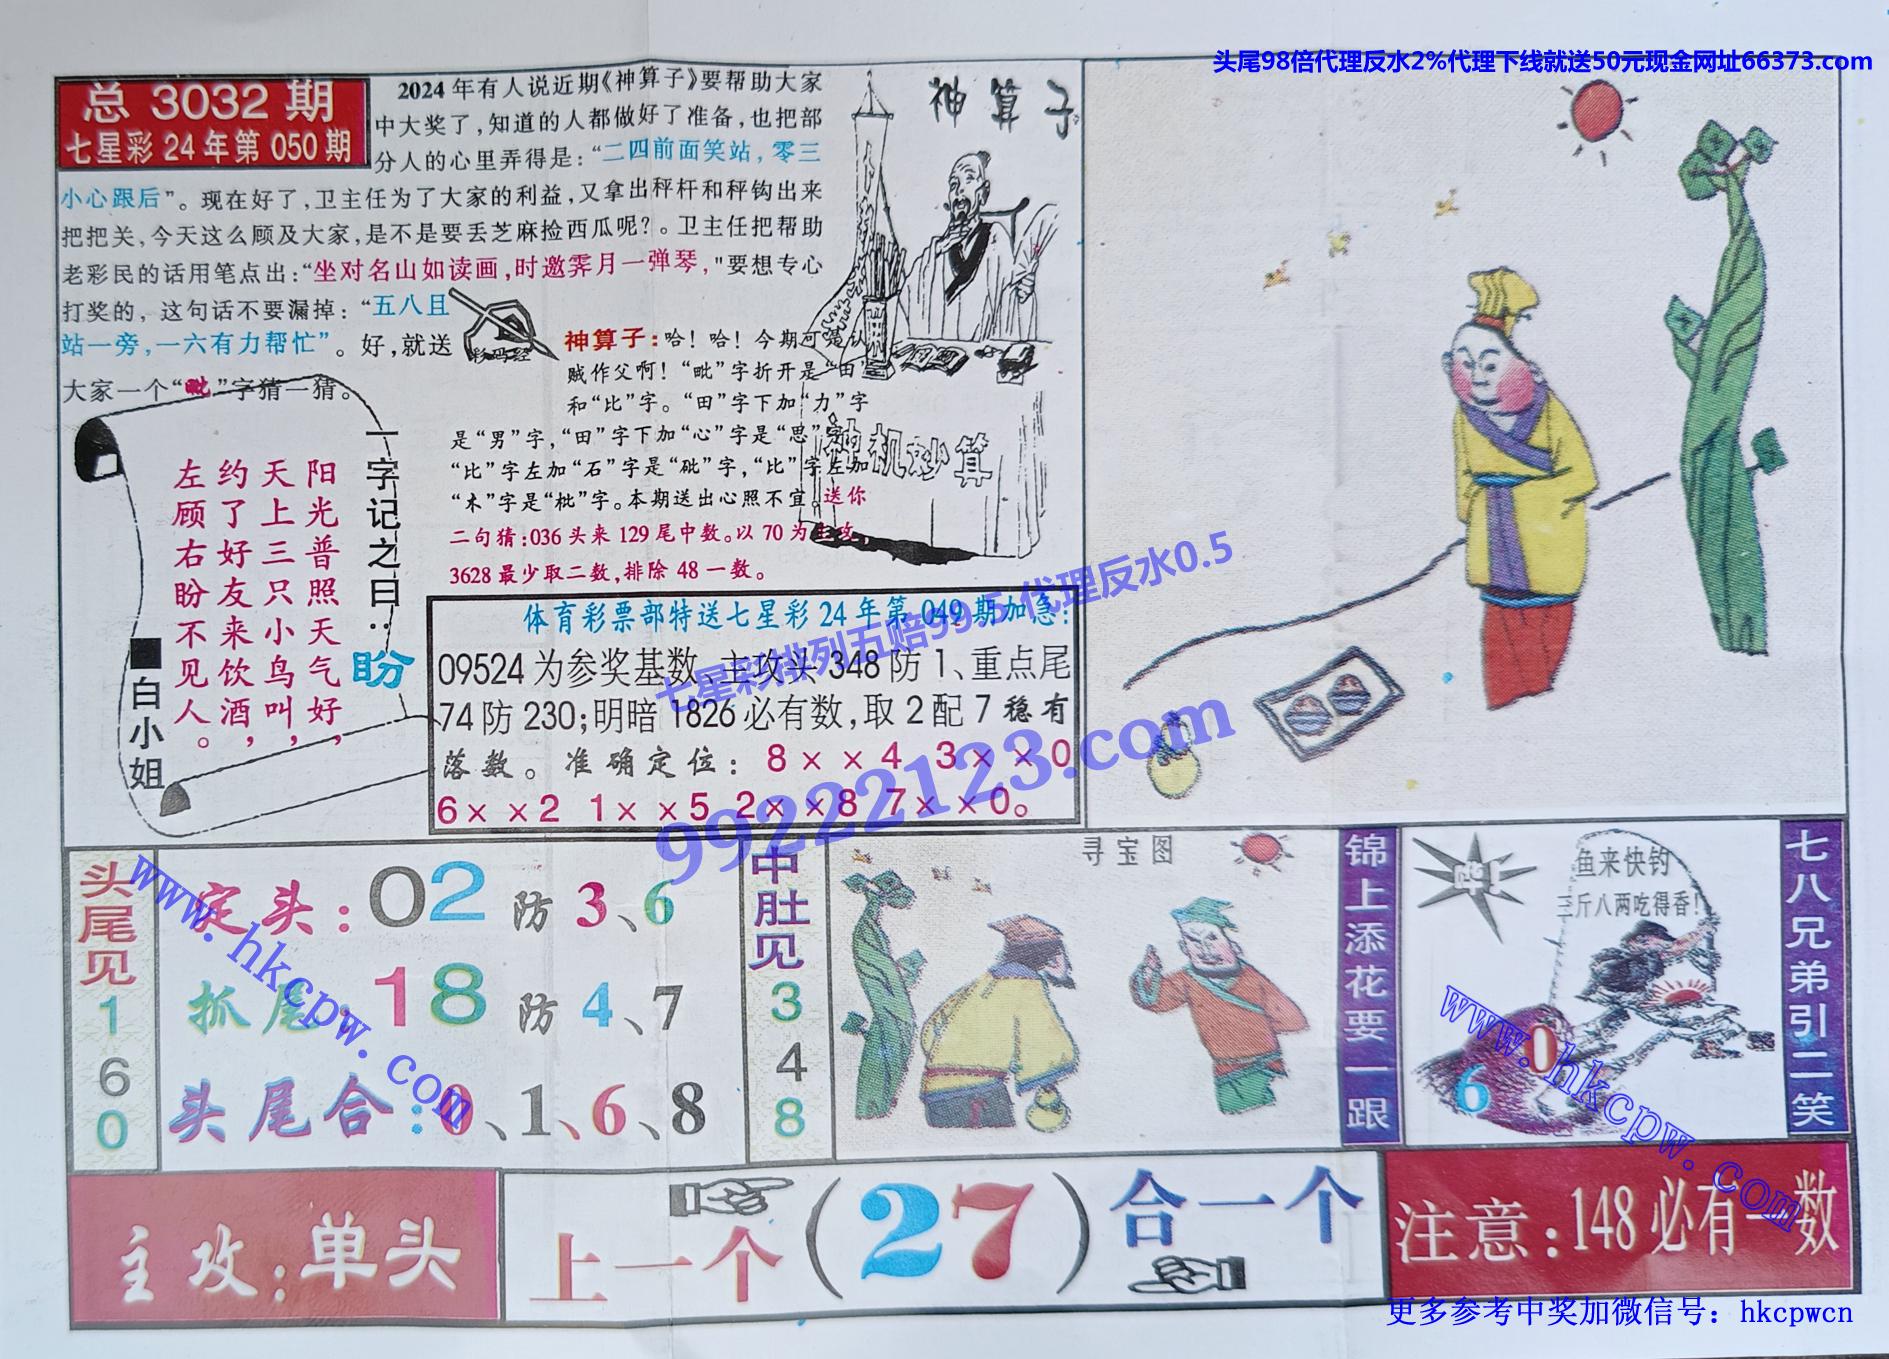 头尾98倍代理反水2%代理下线就送50元现金网址66373.com
总 3032 期
七星彩 24 年第 050 期
2024 年有人说近期《神算子》要帮助大家
中大奖了，知道的人都做好了准备，也把部
分人的心里弄得是：“二四前面笑站，零三
小心跟后”。现在好了，卫主任为了大家的利益，又拿出秤杆和秤钩出来
把把关，今天这么顾及大家，是不是要丢芝麻捡西瓜呢？。卫主任把帮助
老彩民的话用笔点出：“坐对名山如读画，时邀霁月一弹琴，"要想专心
打奖的，这句话不要漏掉：“五八且
站一旁，一六有力帮忙”。好，就送
大家一个“毗”字猜一猜。
神算子
神算子：哈！哈！今期可是认
贼作父啊！“毗”字折开是“田”
和“比”字。“田”字下加“力”字
是“男”字，“田”字下加“心”字是“思”字
“比”字左加“石”字是“砒”字，“比”字左加
“木”字是“枇”字。本期送出心照不宣。送你
二句猜：036 头来 129 尾中数。以 70 为主攻，
3628 最少取二数，排除 48 一数。
神机妙算
一字记之曰：盼
阳光普照天气好，
天上三只小鸟叫，
约了好友来饮酒，
左顾右盼不见人。
■白小姐
体育彩票部特送七星彩 24 年第 049 期加急：
09524 为参奖基数、主攻头 348 防 1、重点尾
74 防 230；明暗 1826 必有数，取 2 配 7 稳有
落数。准确定位：8××4 3××0
6××2 1××5 2××8 7××0。
七星彩排列五赔99.5 代理反水0.5
99222123.com
头尾见160
定头：02 防 3、6
抓尾：18 防 4、7
头尾合：0、1、6、8
www.hkcpw.com
中肚见348
寻宝图
锦上添花要一跟
鱼来快钓
三斤八两吃得香！
6 0
www.hkcpw.com
七八兄弟引二笑
主攻：单头
上一个（27）合一个
注意：148 必有一数
更多参考中奖加微信号：hkcpwcn